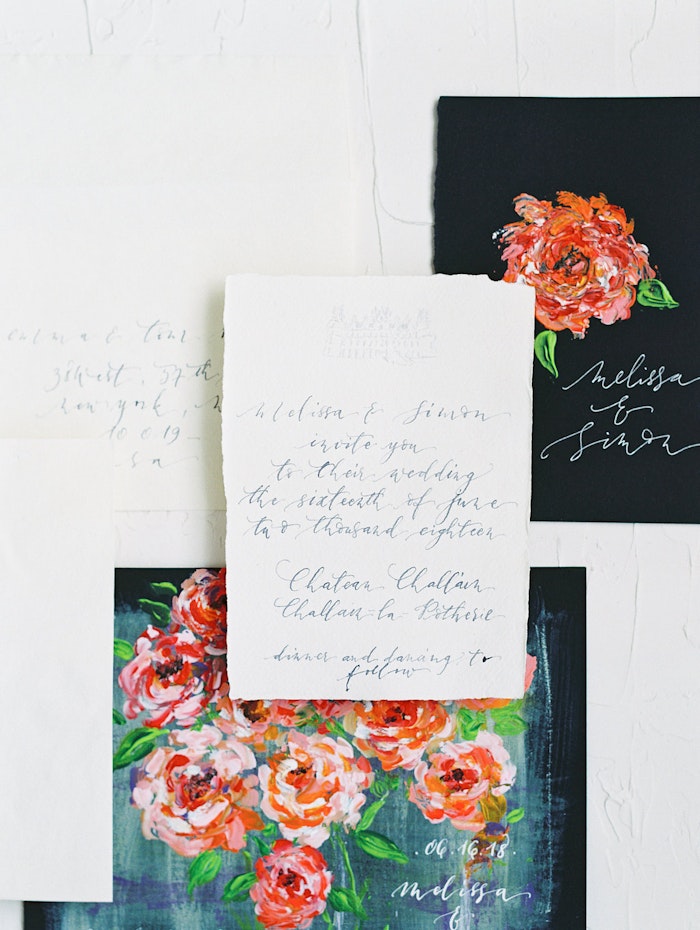 melissa
&
Simon
new york,
10019
Melissa & Simon
invite you
to their wedding
the sixteenth of june
two thousand eighteen
Chateau Challain
Challain-la-Potherie
dinner and dancing to
follow
.06.16.18.
melissa
&